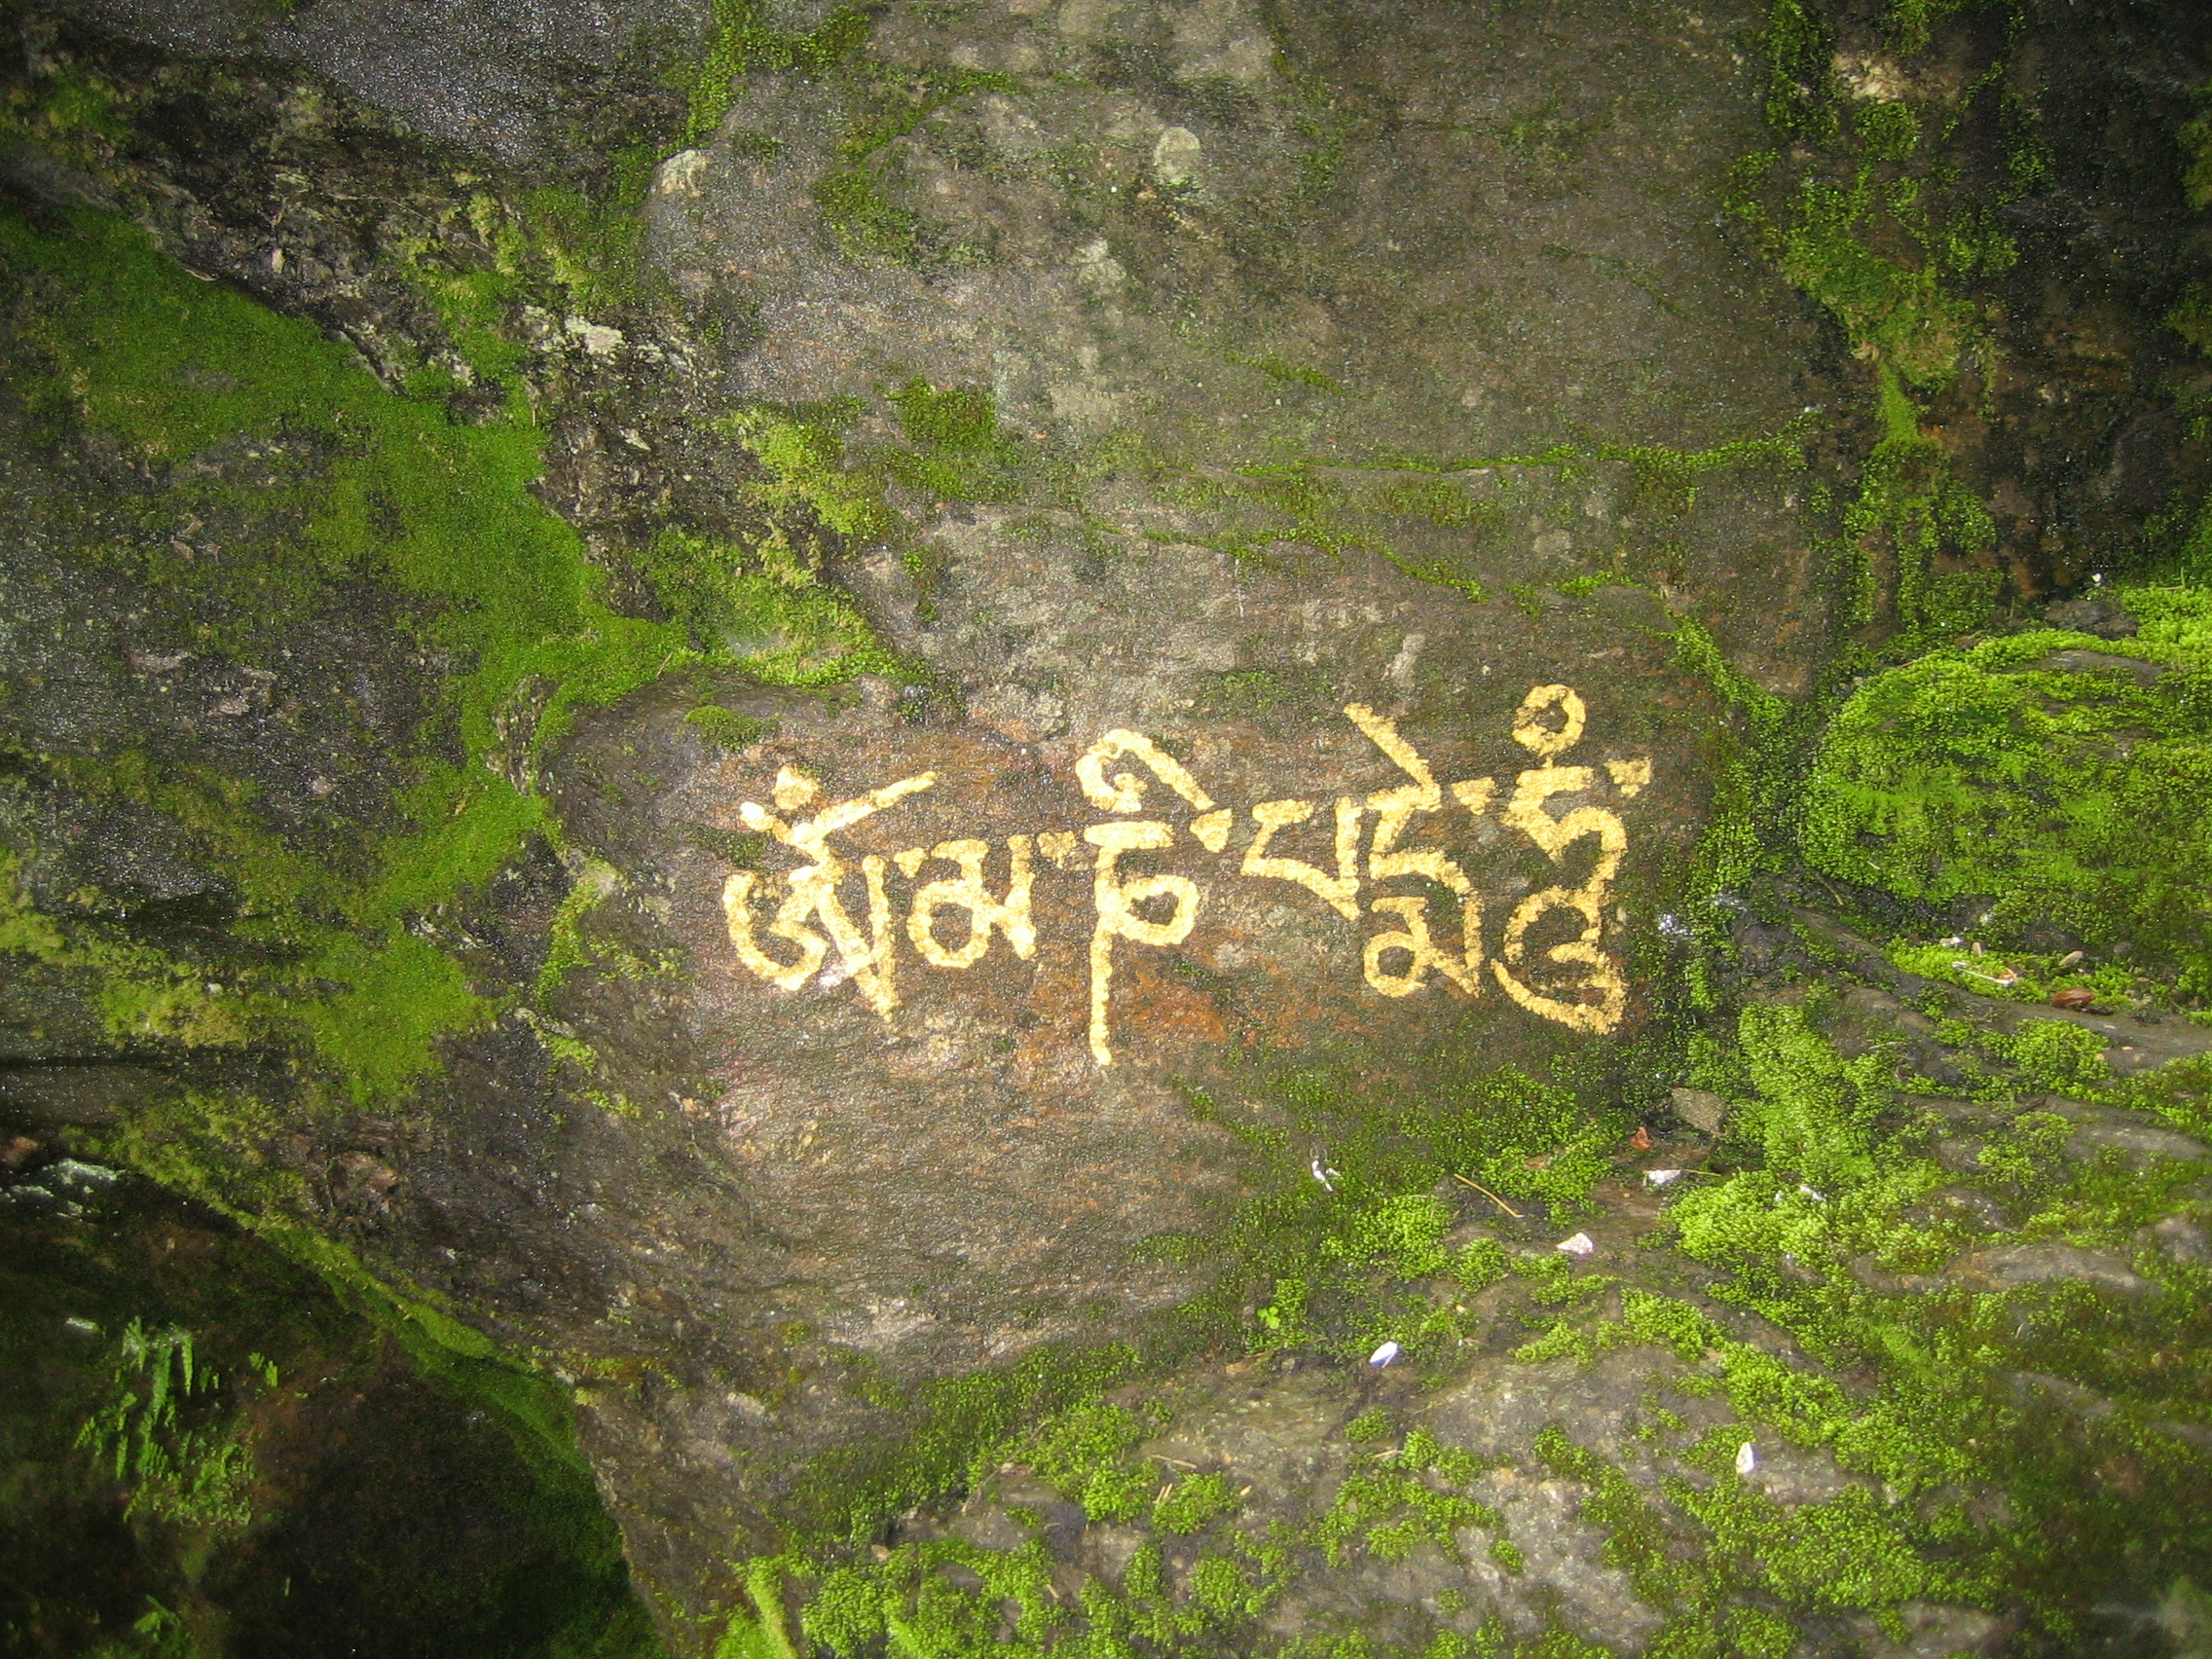 ༀ་མ་ཎི་པདྨེ་ཧཱུྃ་